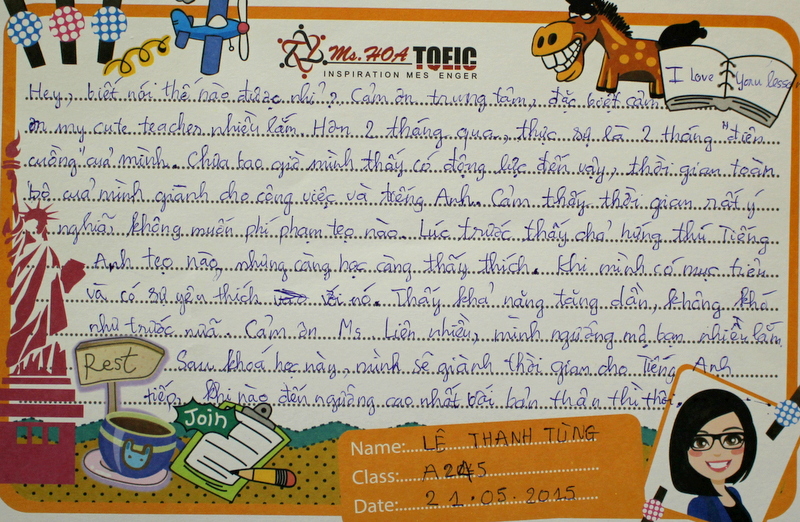 Ms. HOA TOEIC
INSPIRATION MES ENGER
I love Your lesson
Hey, biết nói thế nào được nhỉ? Cảm ơn trung tâm, đặc biệt cảm
ơn my cute teacher nhiều lắm. Hơn 2 tháng qua, thực sự là 2 tháng "điên
cuồng" của mình. Chưa bao giờ mình thấy có động lực đến vậy, thời gian toàn
bộ của mình giành cho công việc và tiếng Anh. Cảm thấy thời gian rất ý
nghĩa không muốn phí phạm tẹo nào. Lúc trước thấy chả hứng thú Tiếng
Anh tẹo nào, nhưng càng học càng thấy thích. Khi mình có mục tiêu
và có sự yêu thích với nó. Thấy khả năng tăng dần, không khó
như trước nữa. Cảm ơn Ms. Liên nhiều, mình ngưỡng mộ bạn nhiều lắm
Sau khoá học này, mình sẽ giành thời gian cho Tiếng Anh
tiếp, khi nào đến ngưỡng cao nhất với bản thân thì thôi.
Rest
Join
Name: LÊ THANH TÙNG
Class: A245
Date: 21.05.2015